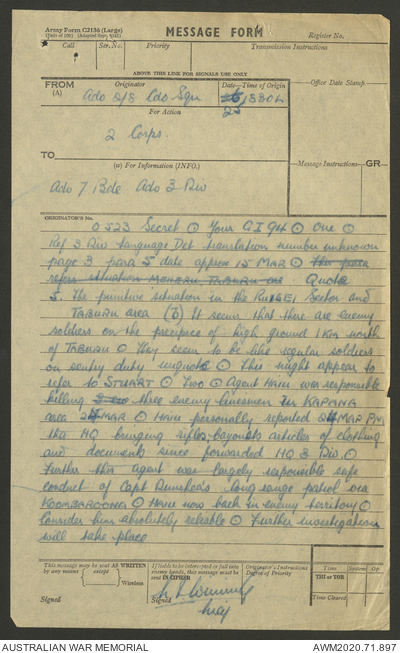 Army Form C2136 (Large)
MESSAGE FORM
Register No.
Call
Ser. No.
Priority
Transmission Instructions
ABOVE THIS LINE FOR SIGNALS USE ONLY
FROM
(A)
Originator
Date—Time of Origin
Office Date Stamp
Adv 2/8 Cdo Sqn
25
1330L
For Action
2 Corps.
TO
(w) For Information (INFO.)
Message Instructions
GR
Adv 7 Bde Adv 3 Div
ORIGINATOR'S No.
0523 Secret ⊙ Your GI 94 ⊙ One ⊙
Ref 3 Div Language Det translation number unknown
page 3 para 5 date approx 15 MAR ⊙ This para
refers situation TABUAN Quote
5. The primitive situation in the RUISEI Sector and
TABUAN area (b) It seems that there are enemy
soldiers on the precipice of high ground 1 Km north
of TABUAN ⊙ They seem to be like regular soldiers
on sentry duty unquote ⊙ This might appear to
refer to STUART ⊙ Two ⊙ Agent was responsible
killing three enemy linesmen in KAPANA
area 24 MAR ⊙ personally reported 24 MAR PM
this HQ bringing rifles, bayonets articles of clothing
and documents since forwarded HQ 3 Div. ⊙
Further this agent was largely responsible safe
conduct of Capt Dunshea's long range patrol via
⊙ now back in enemy territory ⊙
Consider him absolutely reliable ⊙ Further investigations
will take place
This message may be sent AS WRITTEN
by any means except Wireless
If liable to be intercepted or fall into
enemy hands, this message must be
sent IN CIPHER
Originator's Instructions
Degree of Priority
Time
System
Op.
THI or TOR
Time Cleared
Signed
Signed
Maj
AUSTRALIAN WAR MEMORIAL
AWM2020.71.897